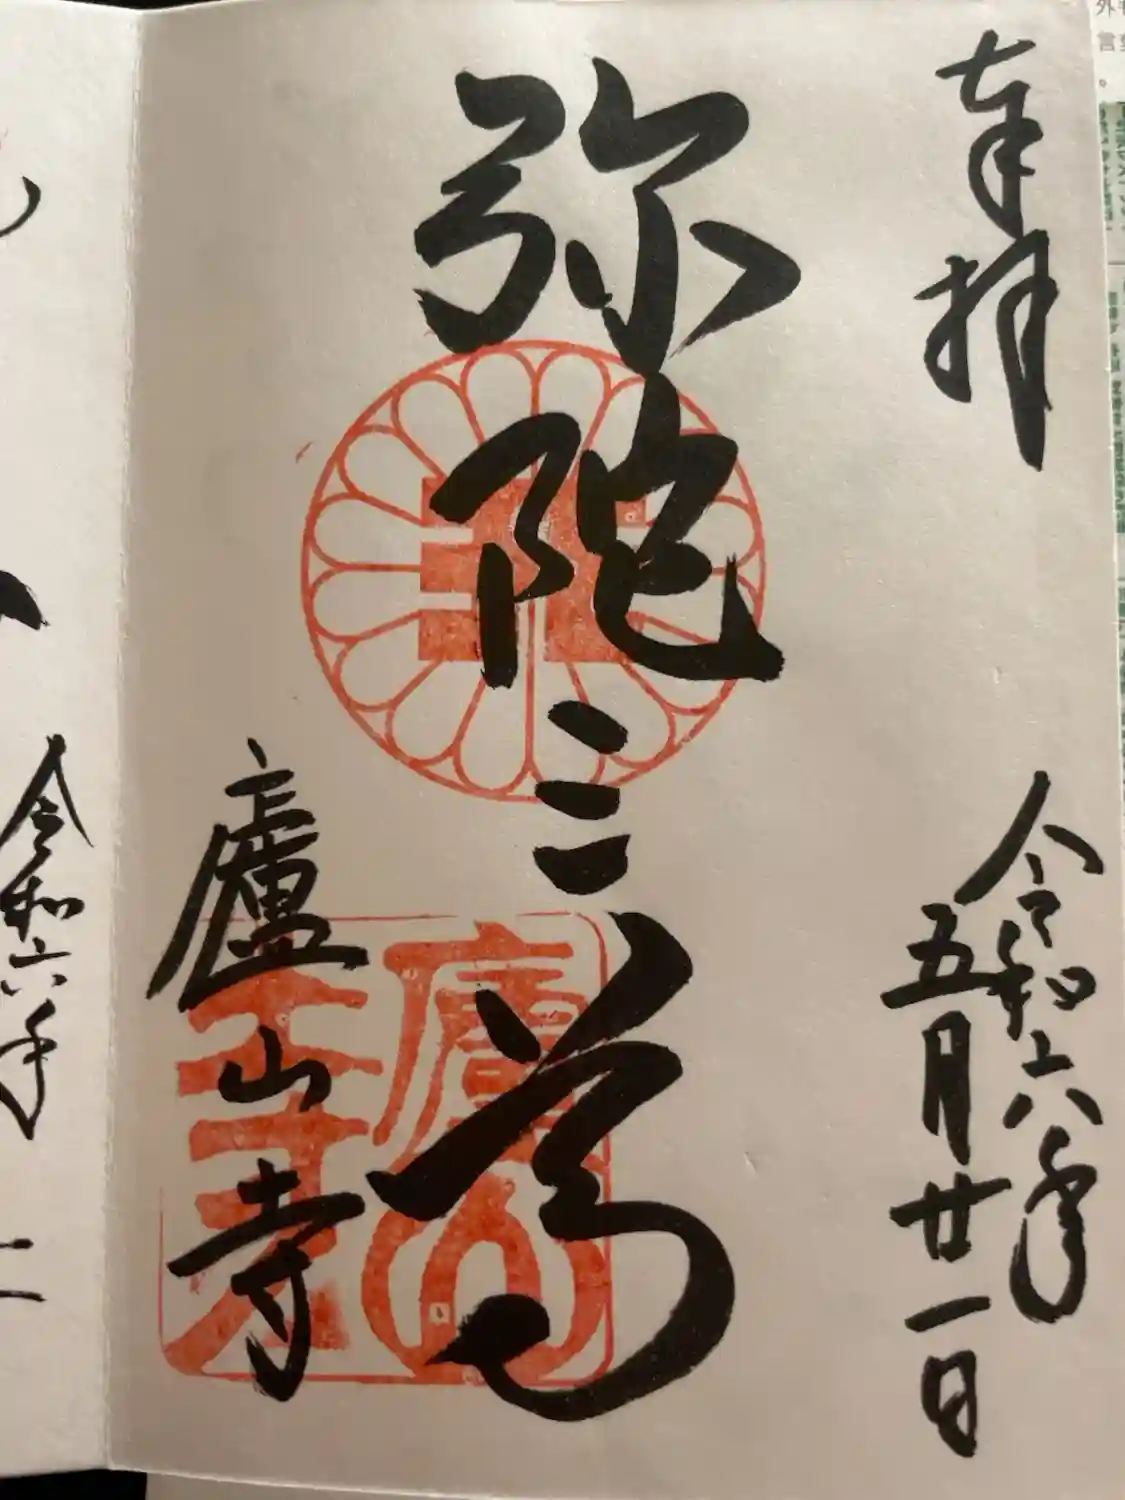 奉拝
令和六年
五月廿一日
弥陀三尊
廬山寺
令和六年